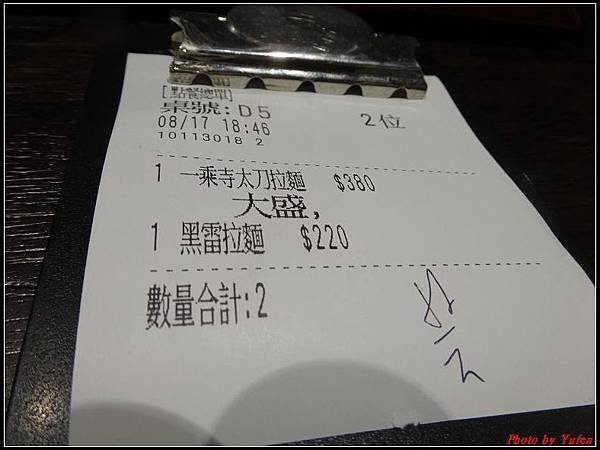 [點餐總單]
桌號:D5 2位
08/17 18:46
10113018 2
1 一乘寺太刀拉麵 $380
大盛,
1 黑雷拉麵 $220
數量合計:2
Photo by Yufen